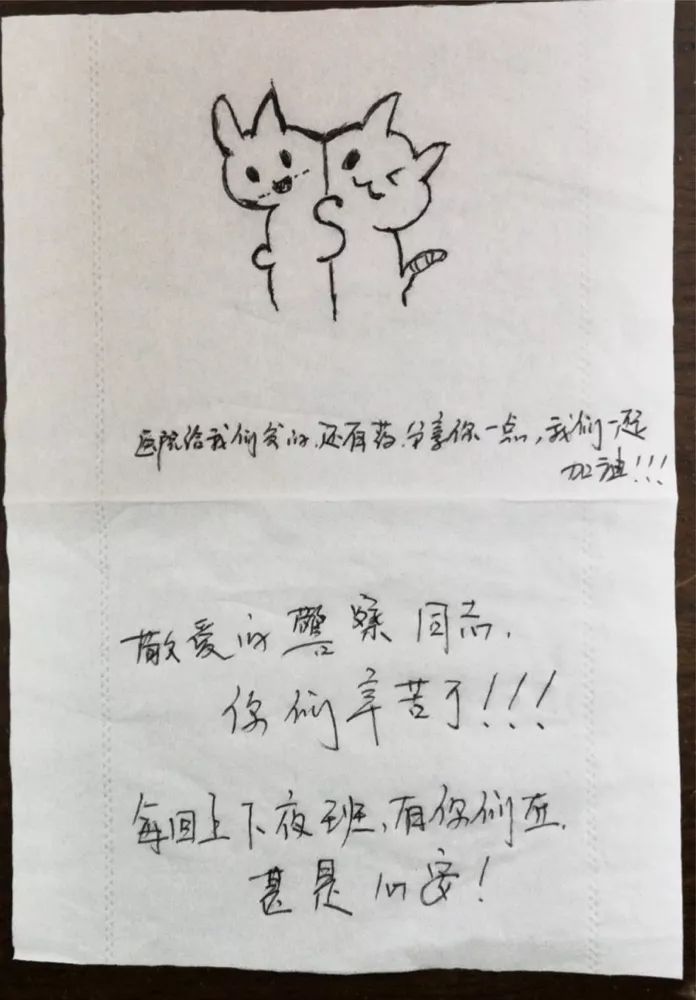 医院给我们发的,还有药.分享你一点,我们一起
加油!!!
敬爱的警察同志,
你们辛苦了!!!
每回上下夜班,有你们在,
甚是心安!